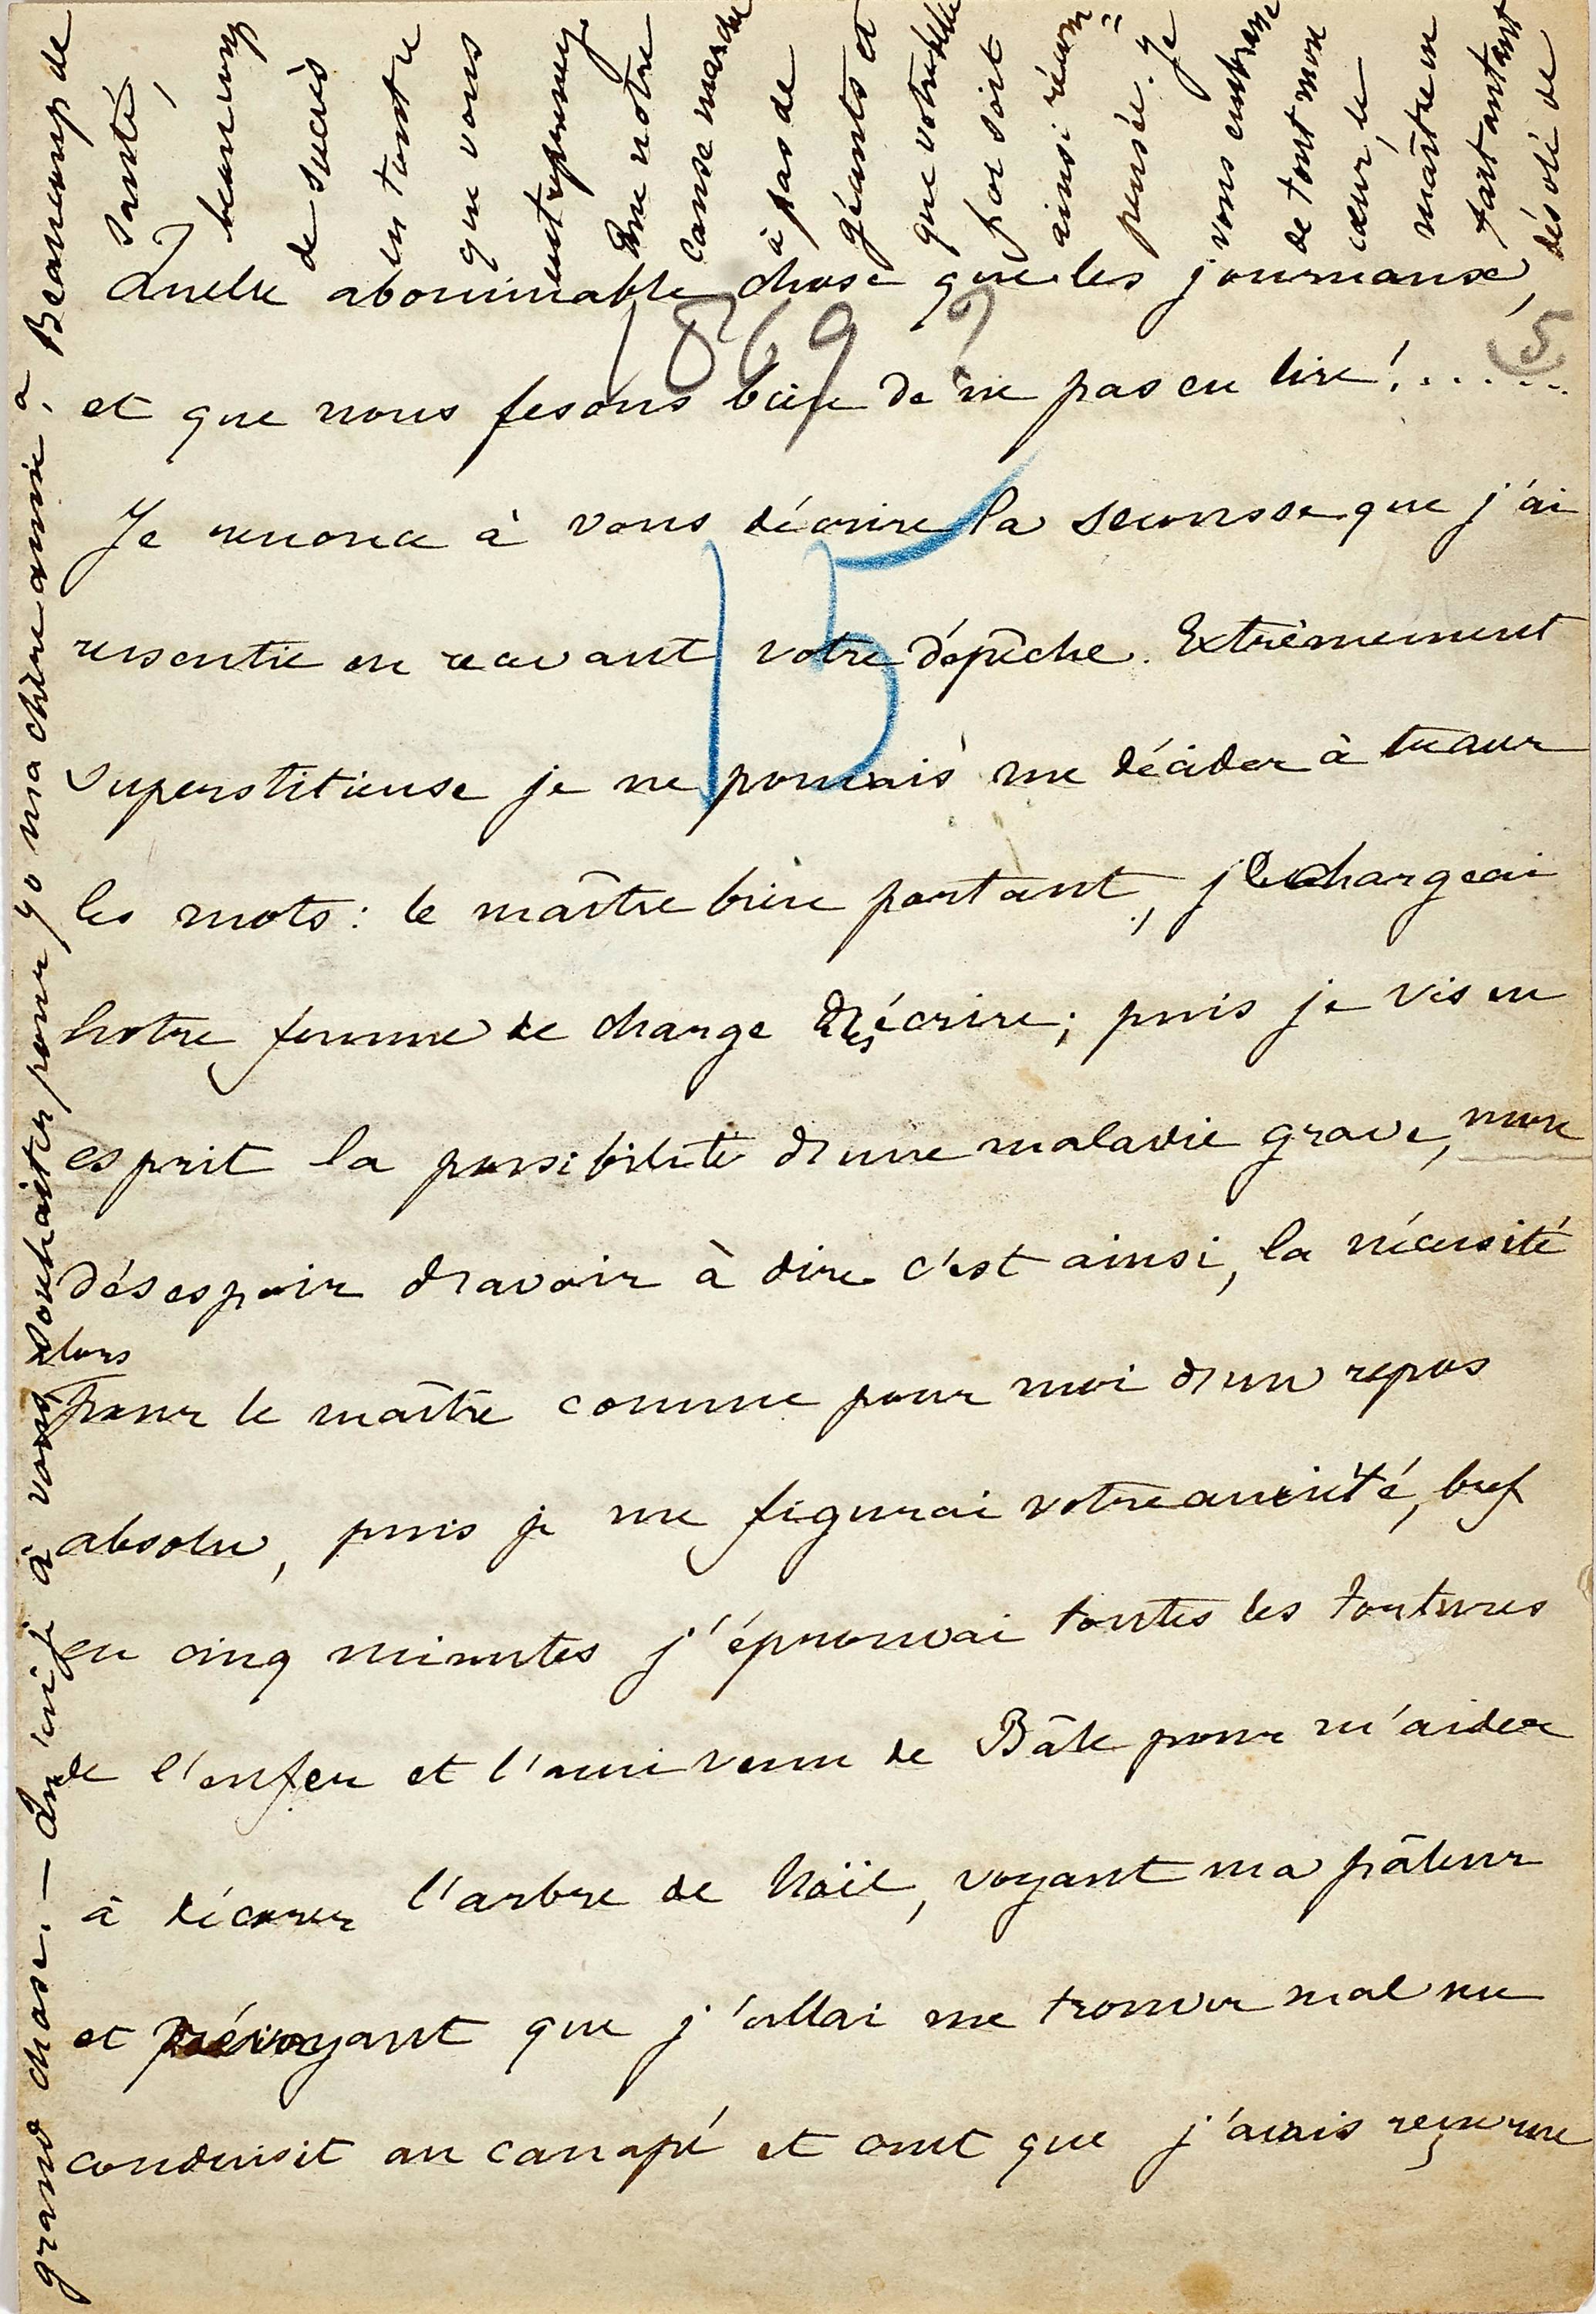 Quelle abominable chose que les journaux,
et que nous fesons bien de ne pas en lire! . . . . . .
Je renonce à vous décrire la secousse que j'ai
ressentie en recevant votre dépêche. Extrêmement
superstitieuse je ne pouvais me décider à tracer
les mots: le maître bien portant, je chargeai
notre femme de charge de les écrire; puis je vis en
esprit la possibilité d'une maladie grave, mon
désespoir d'avoir à dire c'est ainsi, la nécessité
alors
pour le maître comme pour moi d'un repos
absolu, puis je me figurai votre anxiété, bref
en cinq minutes j'éprouvai toutes les tortures
de l'enfer et l'ami venu de Bâle pour m'aider
à décorer l'arbre de Noël, voyant ma pâleur
et prévoyant que j'allai me trouver mal me
conduisit au canapé et crut que j'avais reçu une
1869 ?
5
15
grand chose. — Qu'ai-je à vous souhaiter pour 70 ma chère amie, Beaucoup de
santé,
beaucoup
de succès
en tout ce
que vous
entreprenez
que notre
cause marche
à pas de
géants et
que votre belle
foi soit
ainsi récom=
pensée. Je
vous embrasse
de tout mon
cœur, le
maître en
fait autant
désolé de